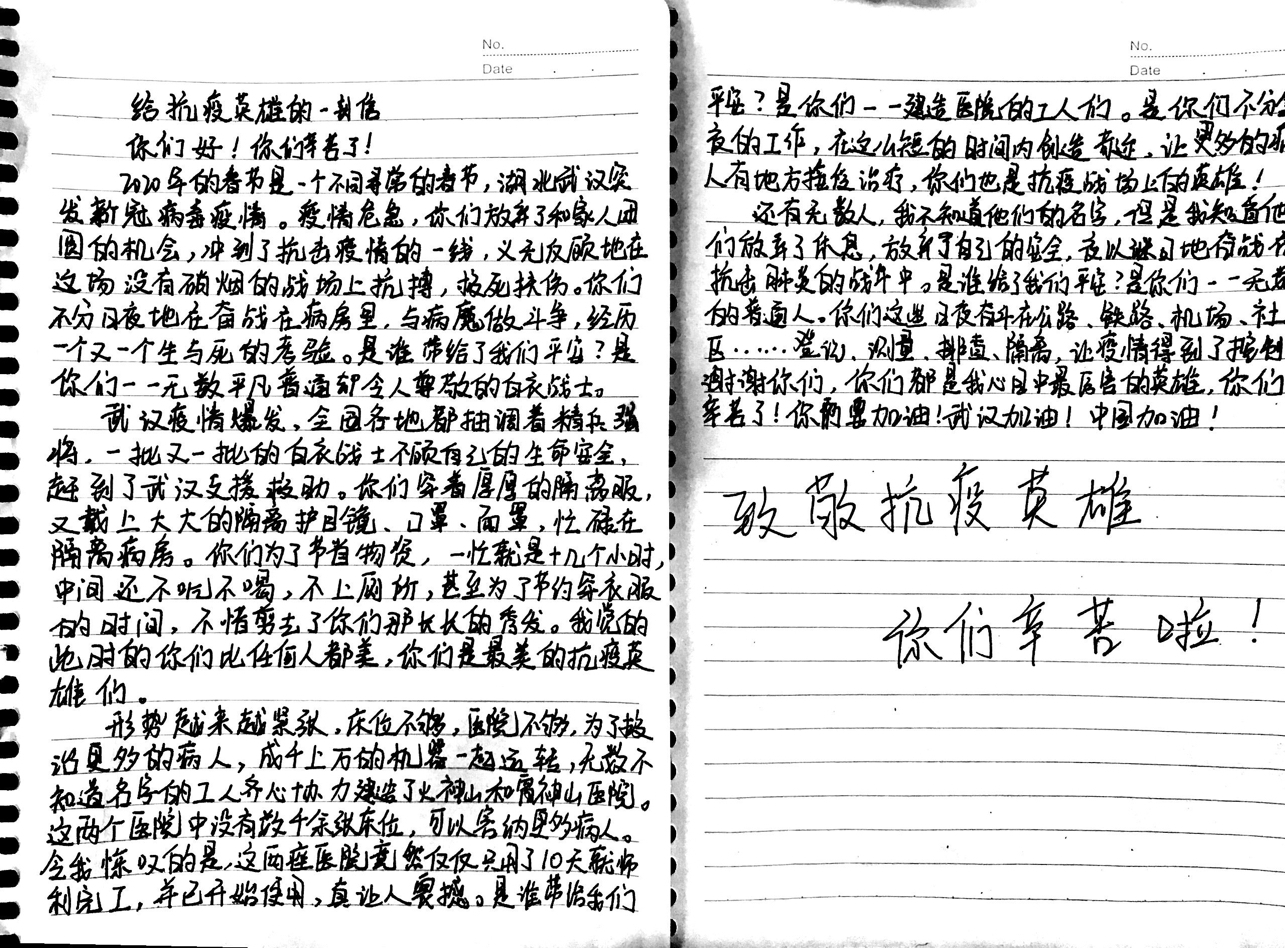 No.
Date
给抗疫英雄的一封信
你们好！你们辛苦了！
2020年的春节是一个不同寻常的春节，湖北武汉突
发新冠病毒疫情。疫情危急，你们放弃了和家人团
圆的机会，冲到了抗击疫情的一线，义无反顾地在
这场没有硝烟的战场上抗搏，救死扶伤。你们
不分日夜地在奋战在病房里，与病魔做斗争，经历
一个又一个生与死的考验。是谁带给了我们平安？是
你们——无数平凡普通却令人尊敬的白衣战士。
武汉疫情爆发，全国各地都抽调着精兵强
将，一批又一批的白衣战士不顾自己的生命安全，
赶到了武汉支援救助。你们穿着厚厚的隔离服，
又戴上大大的隔离护目镜、口罩、面罩，忙碌在
隔离病房。你们为了节省物资，一忙就是十几个小时，
中间还不吃不喝，不上厕所，甚至为了节约穿衣服
的时间，不惜剪去了你们那长长的秀发。我觉的
此时的你们比任何人都美，你们是最美的抗疫英
雄们。
形势越来越紧张，床位不够，医院不够，为了救
治更多的病人，成千上万的机器一起运转，无数不
知道名字的工人齐心协力建造了火神山和雷神山医院。
这两个医院中设有数千余张床位，可以容纳更多病人。
令我惊叹的是，这两座医院竟然仅仅只用了10天就师
利完工，并已开始使用，真让人震撼。是谁带给我们
No.
Date
平安？是你们——建造医院的工人们。是你们不分
夜的工作，在这么短的时间内创造奇迹，让更多的病
人有地方接住治疗，你们也是抗疫战场上的英雄！
还有无数人，我不知道他们的名字，但是我知道他
们放弃了休息，放弃了自己的安全，夜以继日地奋战在
抗击肺炎的战斗中。是谁给了我们平安？是你们——无英
的普通人。你们这些日夜奋斗在公路、铁路、机场、社
区……登记、测量、排查、隔离，让疫情得到了控制
谢谢你们，你们都是我心目中最厉害的英雄，你们
辛苦了！你们要加油！武汉加油！中国加油！
致敬抗疫英雄
你们辛苦啦！